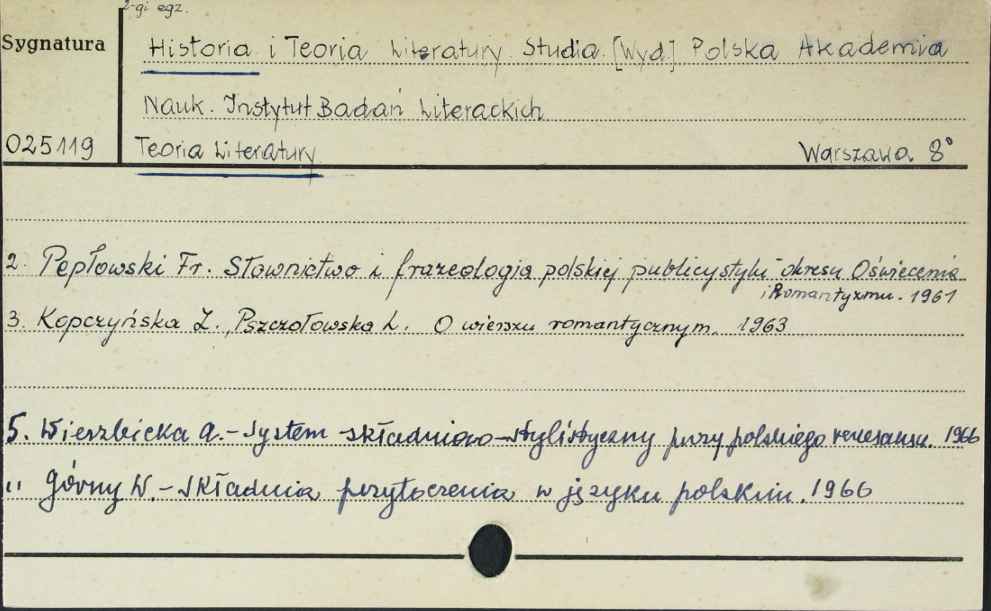 2-gi egz.
Sygnatura
Historia i Teoria Literatury Studia. [Wyd] Polska Akademia
Nauk. Instytut Badań Literackich
025119 Teoria Literatury Warszawa 8°
2. Pepłowski Fr. Słownictwo i frazeologia polskiej publicystyki okresu Oświecenia
i Romantyzmu. 1961
3. Kopczyńska Z., Pszczołowska L. O wierszu romantycznym. 1963
5. Wierzbicka A. - System składniowo-stylistyczny prozy polskiego renesansu. 1966
Górny W. - Składnia przytoczenia w języku polskim. 1966